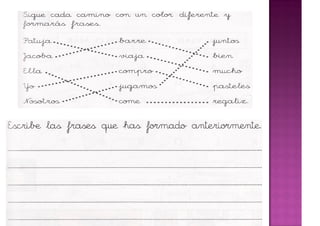 Sigue cada camino con un color diferente y
formarás frases.
Patuja barre juntos
Jacoba viaja bien
Ella compro mucho
Yo jugamos pasteles
Nosotros come regaliz.
Escribe las frases que has formado anteriormente.